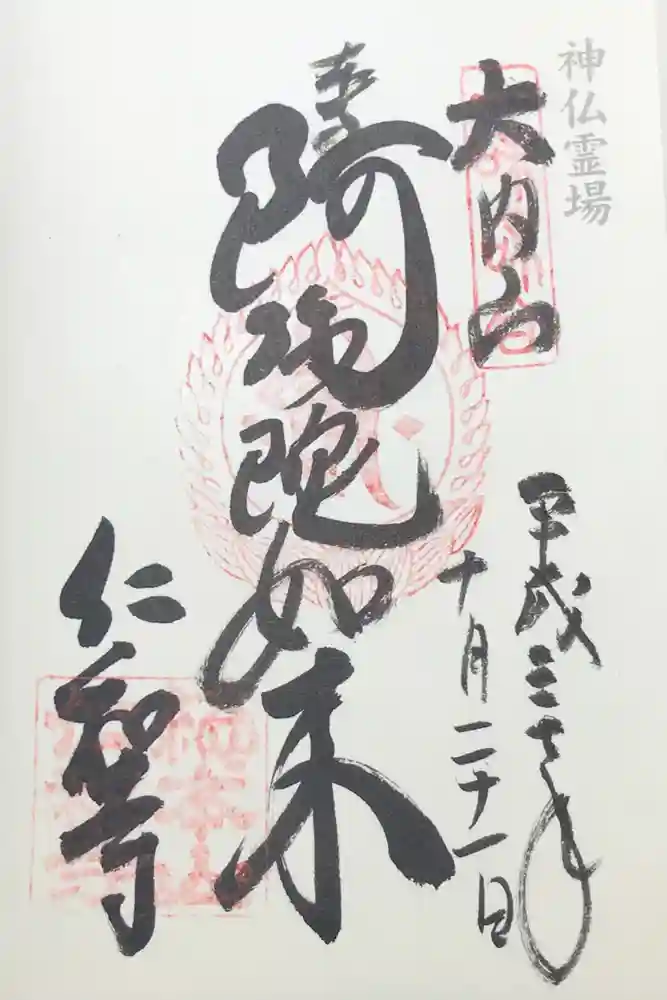 神仏霊場
大内山
平成三十年
十月二十一日
奉
阿弥陀如来
仁和寺